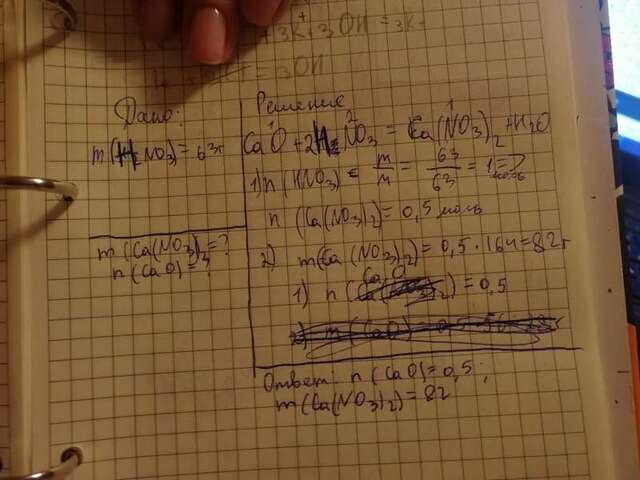 +3K⁺+3OH=3K+
=3OH
Дано:
m(HNO₃)=63г
m(Ca(NO₃)₂=?
n(CaO)=?
Решение
1 2 1
CaO+2HNO₃=Ca(NO₃)₂+H₂O
1) n(HNO₃)=m/M=63/63=1моль=>
n(Ca(NO₃)₂)=0,5моль
2) m(Ca(NO₃)₂)=0,5·164=82г
CaO
1) n( )=0,5
Ответ: n(CaO)=0,5;
m(Ca(NO₃)₂)=82